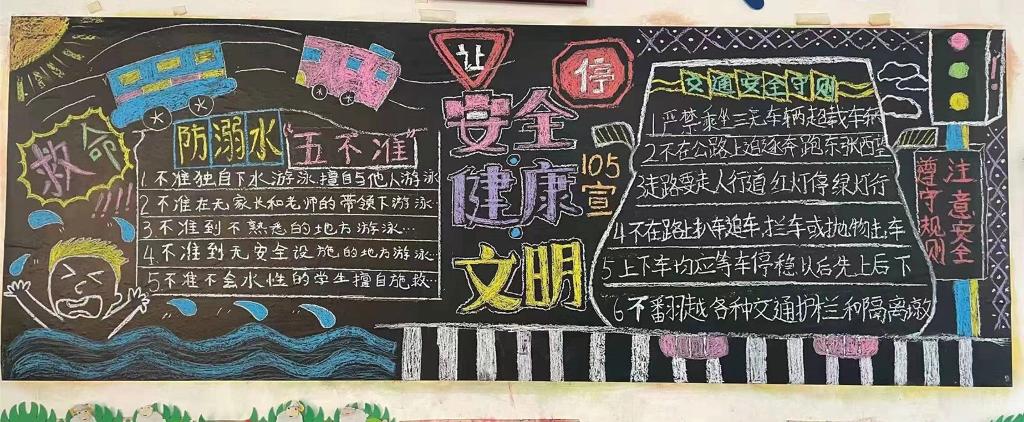 救命
防溺水“五不准”
1.不准独自下水游泳擅自与他人游泳
2不准在无家长和老师的带领下游泳
3不准到不熟悉的地方游泳…
4.不准到无安全设施的地方游泳…
5不准不会水性的学生擅自施救…
让
停
安全
健康
文明
105宣
交通安全守则
1严禁乘坐三无车辆超载车辆
2不在公路上追逐奔跑东张西望
3走路要走人行道红灯停绿灯行
4不在路上扒车追车,拦车或抛物击车
5上下车均应等车停稳以后先上后下
6不翻越各种交通护栏和隔离墩
注意安全
遵守规则